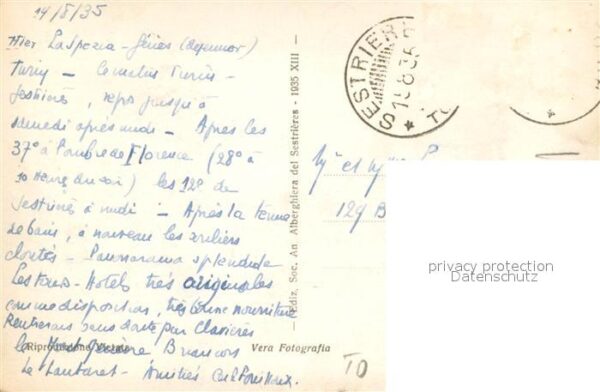 14/8/35
Hier La Spezia - Gênes (déjeuner)
Turin - Ce matin Turin -
Sestrières, repos jusqu'à
samedi après midi - Après les
37° à l'ombre de Florence (28° à
10 heures du soir) les 12° de
Sestrières à midi - Après la tenue
de bain, à nouveau les souliers
cloutés - Panorama splendide
Les tours - Hotels très originales
comme disposition, très bonne nourriture
Rentrerons sans doute par Clavières
le Mont Genèvre Briançon
le Lautaret - Amitiés
Riproduzione Vietata
Vera Fotografia
Ediz. Soc. An. Alberghiera del Sestrières - 1935 XIII -
SESTRIER
15.8.35
TO
Mr et Mme
129 B
TO
privacy protection
Datenschutz